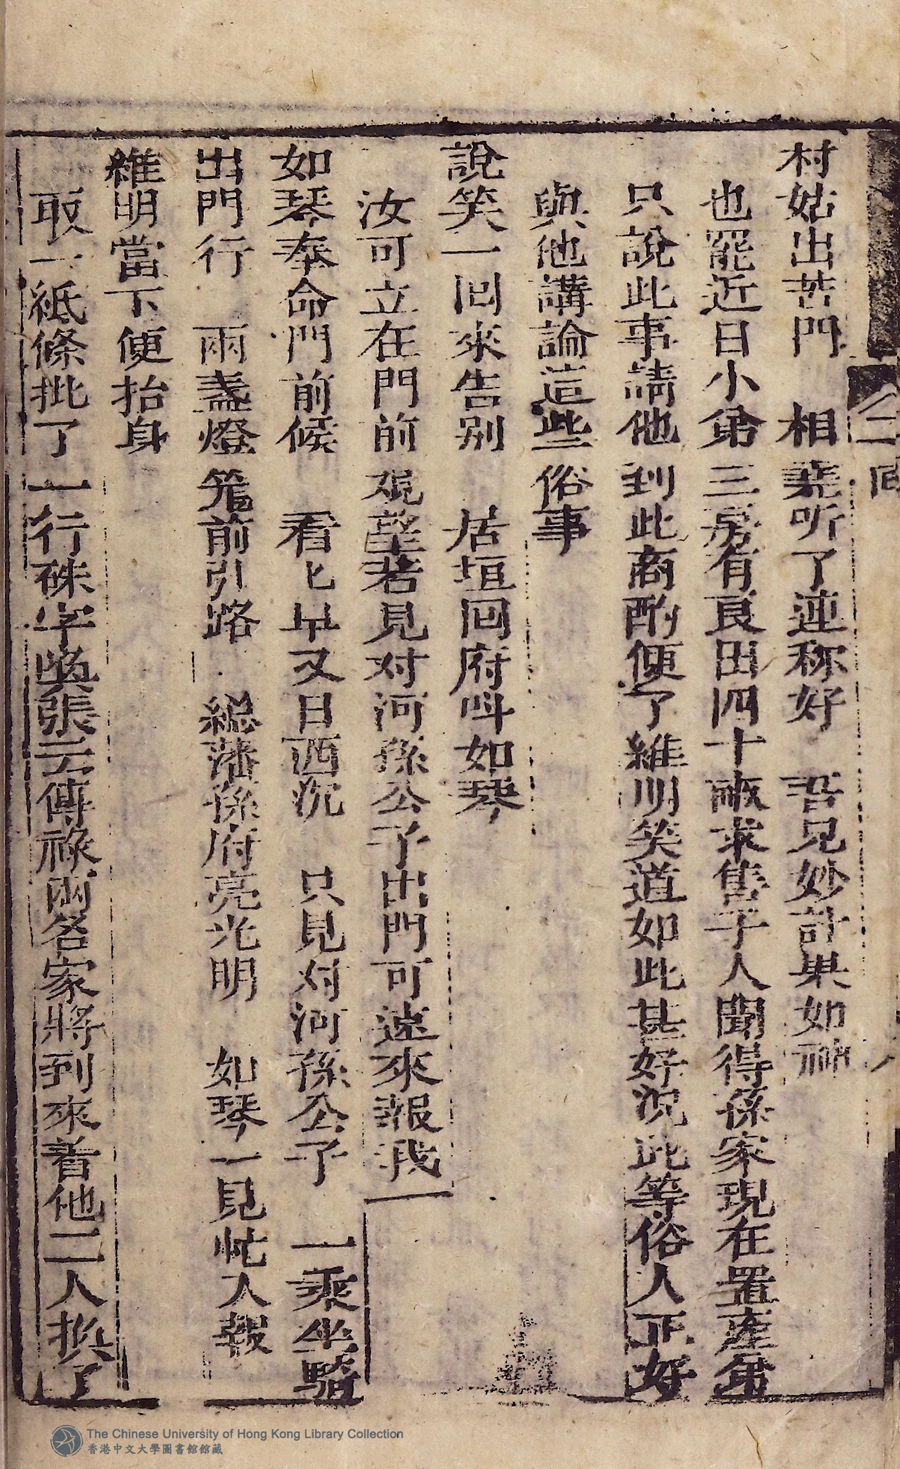 村姑出苦門　相堯听了連称好　吾兄妙計果如神
也罷近日小弟三房有良田四十畝求售于人聞得孫家現在置產弟
只說此事請他到此商酌便了維明笑道如此甚好况此等俗人正好
與他講論這些俗事
說笑一回來告别　居垣回府呌如琴
汝可立在門前觇望若見对河孫公子出門可速來報我
如琴奉命門前候　看匕早又日西沉　只見对河孫公子　一乘坐騎
出門行　兩盞燈笼前引路　総藩孫府亮光明　如琴一見忙入報
維明當下便抬身
取一紙條批了一行硃字喚張云傅祿兩名家將到來着他二人换了
二回
The Chinese University of Hong Kong Library Collection
香港中文大學圖書館館藏